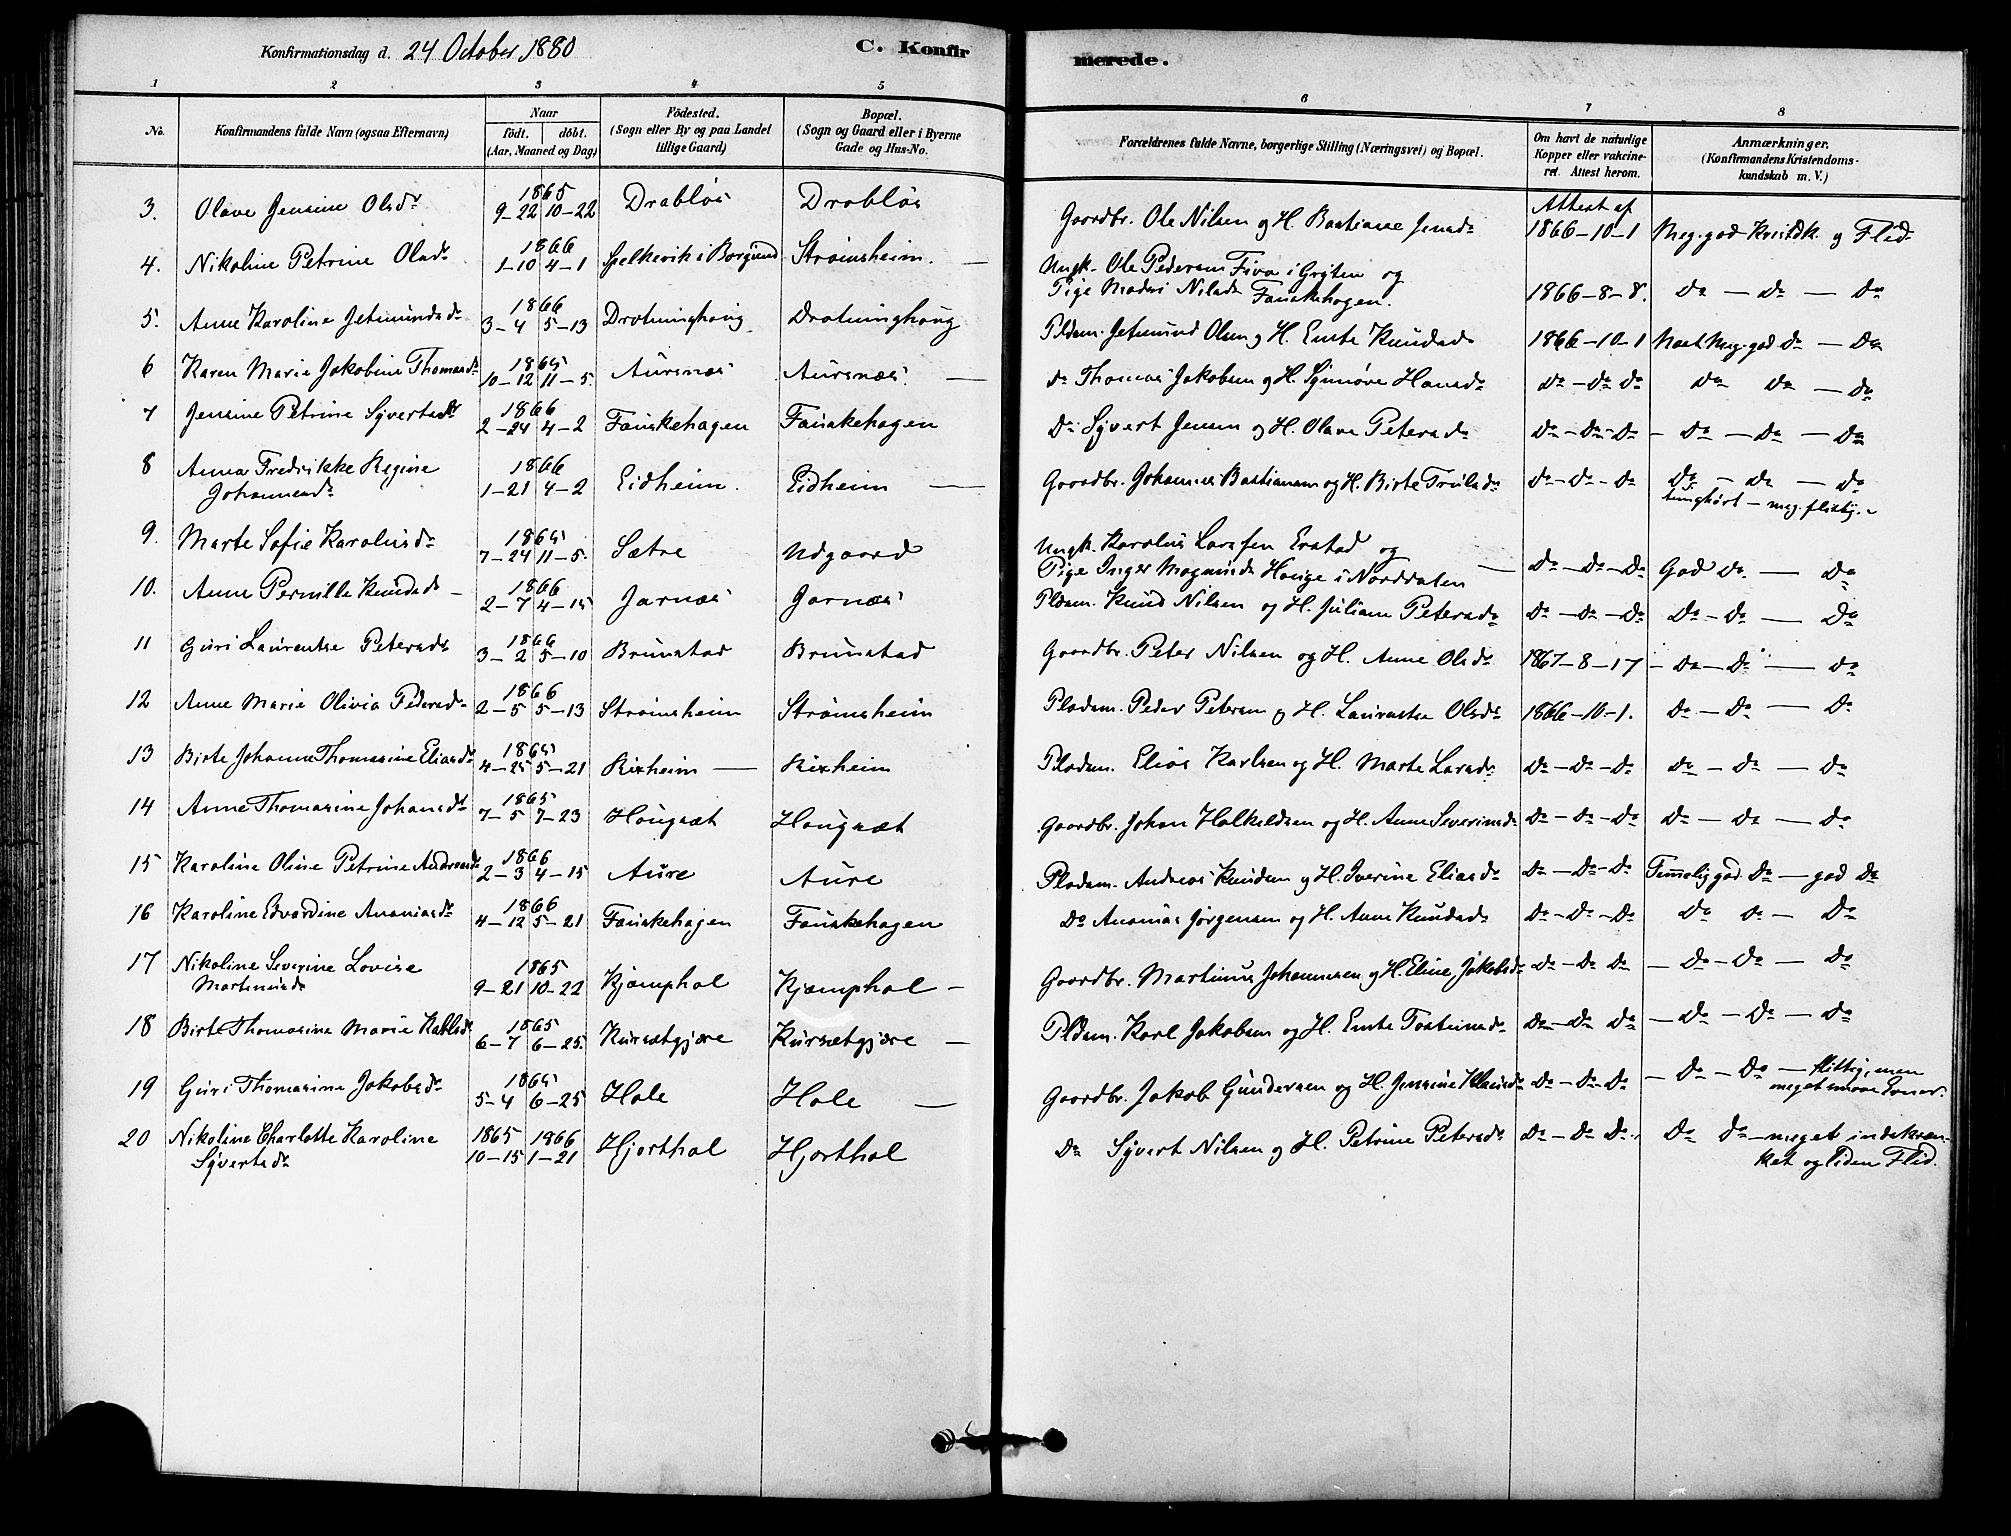 Konfirmationsdag d. 24 October 1880
C. Konfirmerede.
1 2 3 4 5 6 7 8
No. Konfirmandens fulde Navn (ogsaa Efternavn) Naar født. døbt. (Aar, Maaned og Dag) Fødested. (Sogn eller By og paa Landet tillige Gaard) Bopæl. (Sogn og Gaard eller i Byerne Gade og Hus-No. Forældrenes fulde Navne, borgerlige Stilling (Næringsvei) og Bopæl. Om havt de naturlige Kopper eller vakcineret. Attest herom. Anmærkninger. (Konfirmandens Kristendomskundskab m. V.)
3. Olave Jensine Olsdr 1865 9-22 10-22 Drabløs Drabløs Gaardbr. Ole Nilsen og H. Bastiane Jensdr Attest af 1866-10-1 Meg. god Kristdk. og Flid
4. Nikoline Petrine Olsdr 1866 1-10 4-1 Spelkevik i Borgund Strømsheim. — Ungk. Ole Pedersen Fiva i Gryten og
Pige Madsi Nilsdr Fauskehagen. 1866-8-8. Do — Do — Do
5. Anne Karoline Jetmundsdr 1866 3-4 5-13 Drotninghaug Drotninghaug Pldsm. Jetmund Olsen og H. Ente Knudsdr 1866-10-1 Næst Meg. god Do — Do
6 Karen Marie Jakobine Thomasdr 1865 10-12 11-5. Aursnes Aursnæs. — Do Thomas Jakobsen og H. Synnøve Hansdr Do - Do Do Do Do — Do
7 Jensine Petrine Syvertsdr 1866 2-24 4-2 Fauskehagen Fauskehagen Do Syvert Jensen og H. Olave Petersdr Do - Do - Do - Do — Do — Do
8 Anna Fredrikke Regine
Johannesdr 1866 1-21 4-2 Eidheim. Eidheim — Gaardbr. Johannes Bastiansen og H. Birte Trulsdr Do - Do - Do Do — Do — Do
tunghørt — meg. flittig. -
9. Marte Sofie Karolusdr 1865 7-24 11-5. Sætre Udgaard Ungk. Karolus Larssen Erstad og
Pige Inger Magnusdr Hauge i Norddalen — Do - Do - Do God Do. — Do
10. Anne Pernille Knudsdr — 1866 2-7 4-15 Jarnæs Jarnæs Pldsm. Knud Nilsen og H. Juliane Petersdr Do - Do - Do Do - Do — Do
11 Guri Laurentse Petersdr 1866 3-2 5-10 Brunstad Brunstad Gaardbr. Peter Nilsen og H. Anne Olsdr 1867-8-17 - Do - Do — Do
12 Anne Marie Olivia Pedersdr 1866 2-5 5-13 Strømsheim Strømsheim Pladsm. Peder Petersen og H. Laurentse Olsdr 1866-10-1. Do - Do — Do
13 Birte Johanne Thomasine Eliasdr 1865 4-25 5-21 Rixheim — Rixheim Pladsm. Elias Karlsen og H. Marte Larsdr Do - Do - Do Do - Do — Do
14 Anne Thomasine Johansdr 1865 7-5 7-23 Haugsæt Haugsæt Gaardbr. Johan Halkeldsen og H. Anne Severinsdr Do - Do - Do Do — Do — Do
15 Karoline Oline Petrine Andreasdr 1866 2-3 4-15 Aure Aure Pladsm. Andreas Knudsen og H. Iverine Eliasdr Do - Do - Do Temmelig god Do — god Do
16 Karoline Edvardine Ananiasdr 1866 4-12 5-21 Fauskehagen Fauskehagen Do Ananias Jørgensen og H. Anne Knudsdr Do - Do - Do Do Do — Do
17 Nikoline Severine Lovise
Martinusdr 1865 9-21 10-22 Kjæmphol Kjæmphol — Gaardbr. Martinus Johannesen og H. Eline Jakobsdr Do - Do Do — Do - Do — Do
18 Birte Thomasine Marie Karlsdr 1865 6-7 6-25. Kursætgjære Kursætgjære — Pldsm. Karl Jakobsen og H. Ente Tosteinsdr Do - Do Do — Do - Do — Do
19 Guri Thomasine Jakobsdr 1865 5-4 6-25 Hole Hole — Gaardbr. Jakob Gundersen og H. Jensine Klausdr Do - Do - Do — Do - Do — flittig, men
meget smaa Evner.
20 Nikoline Charlotte Karoline
Syvertsdr 1865 10-15 1866 1-21 Hjorthol Hjorthol Do Syvert Nilsen og H. Petrine Petersdr Do - Do Do. Do Do — meget indskræn-
ket og liden Flid.